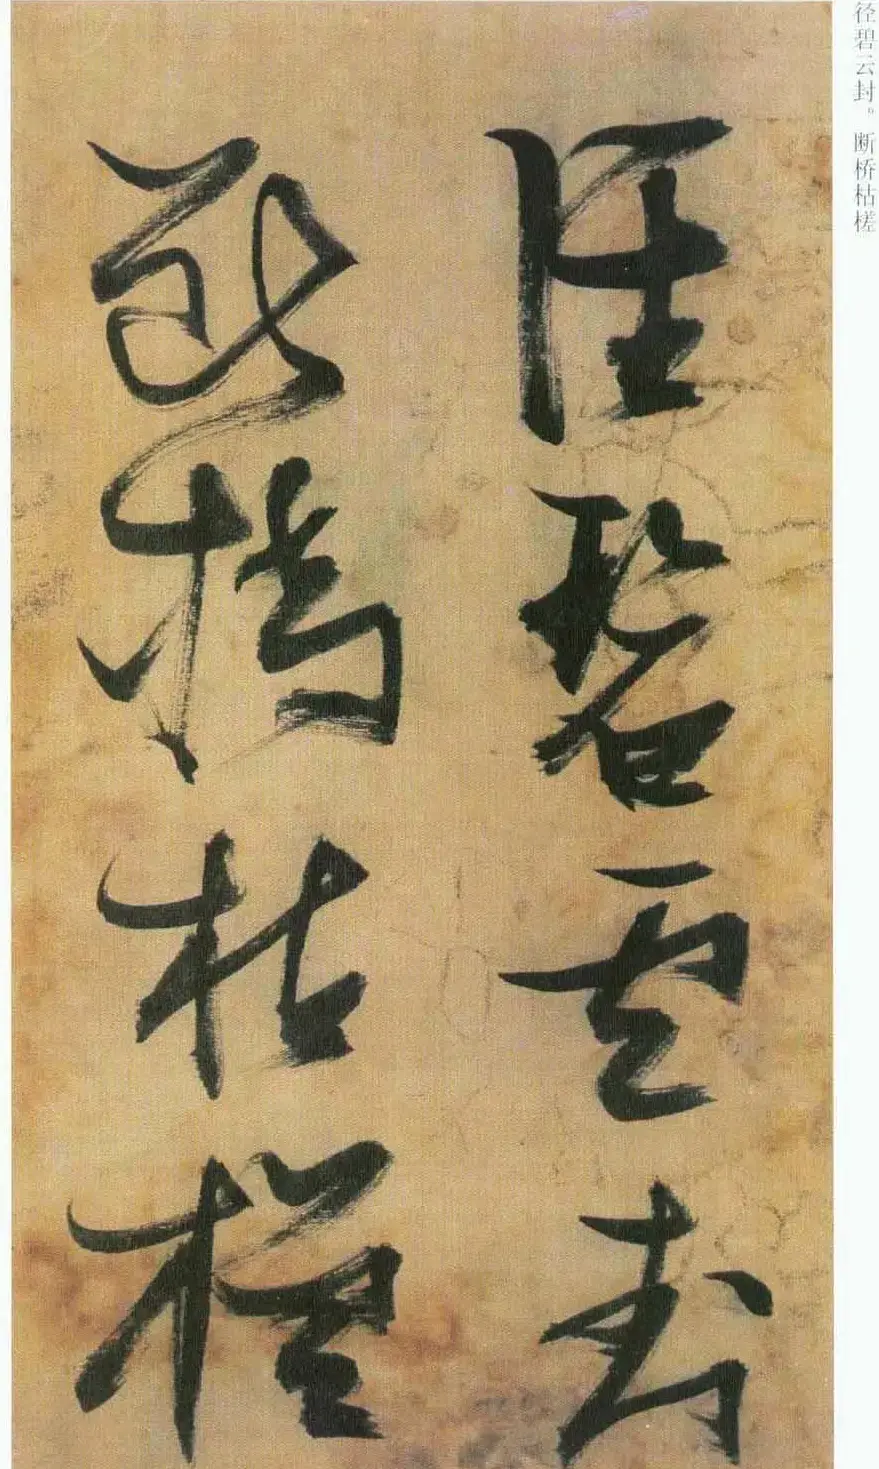 径碧云封。断桥枯槎
径碧雲封
断橋枯槎